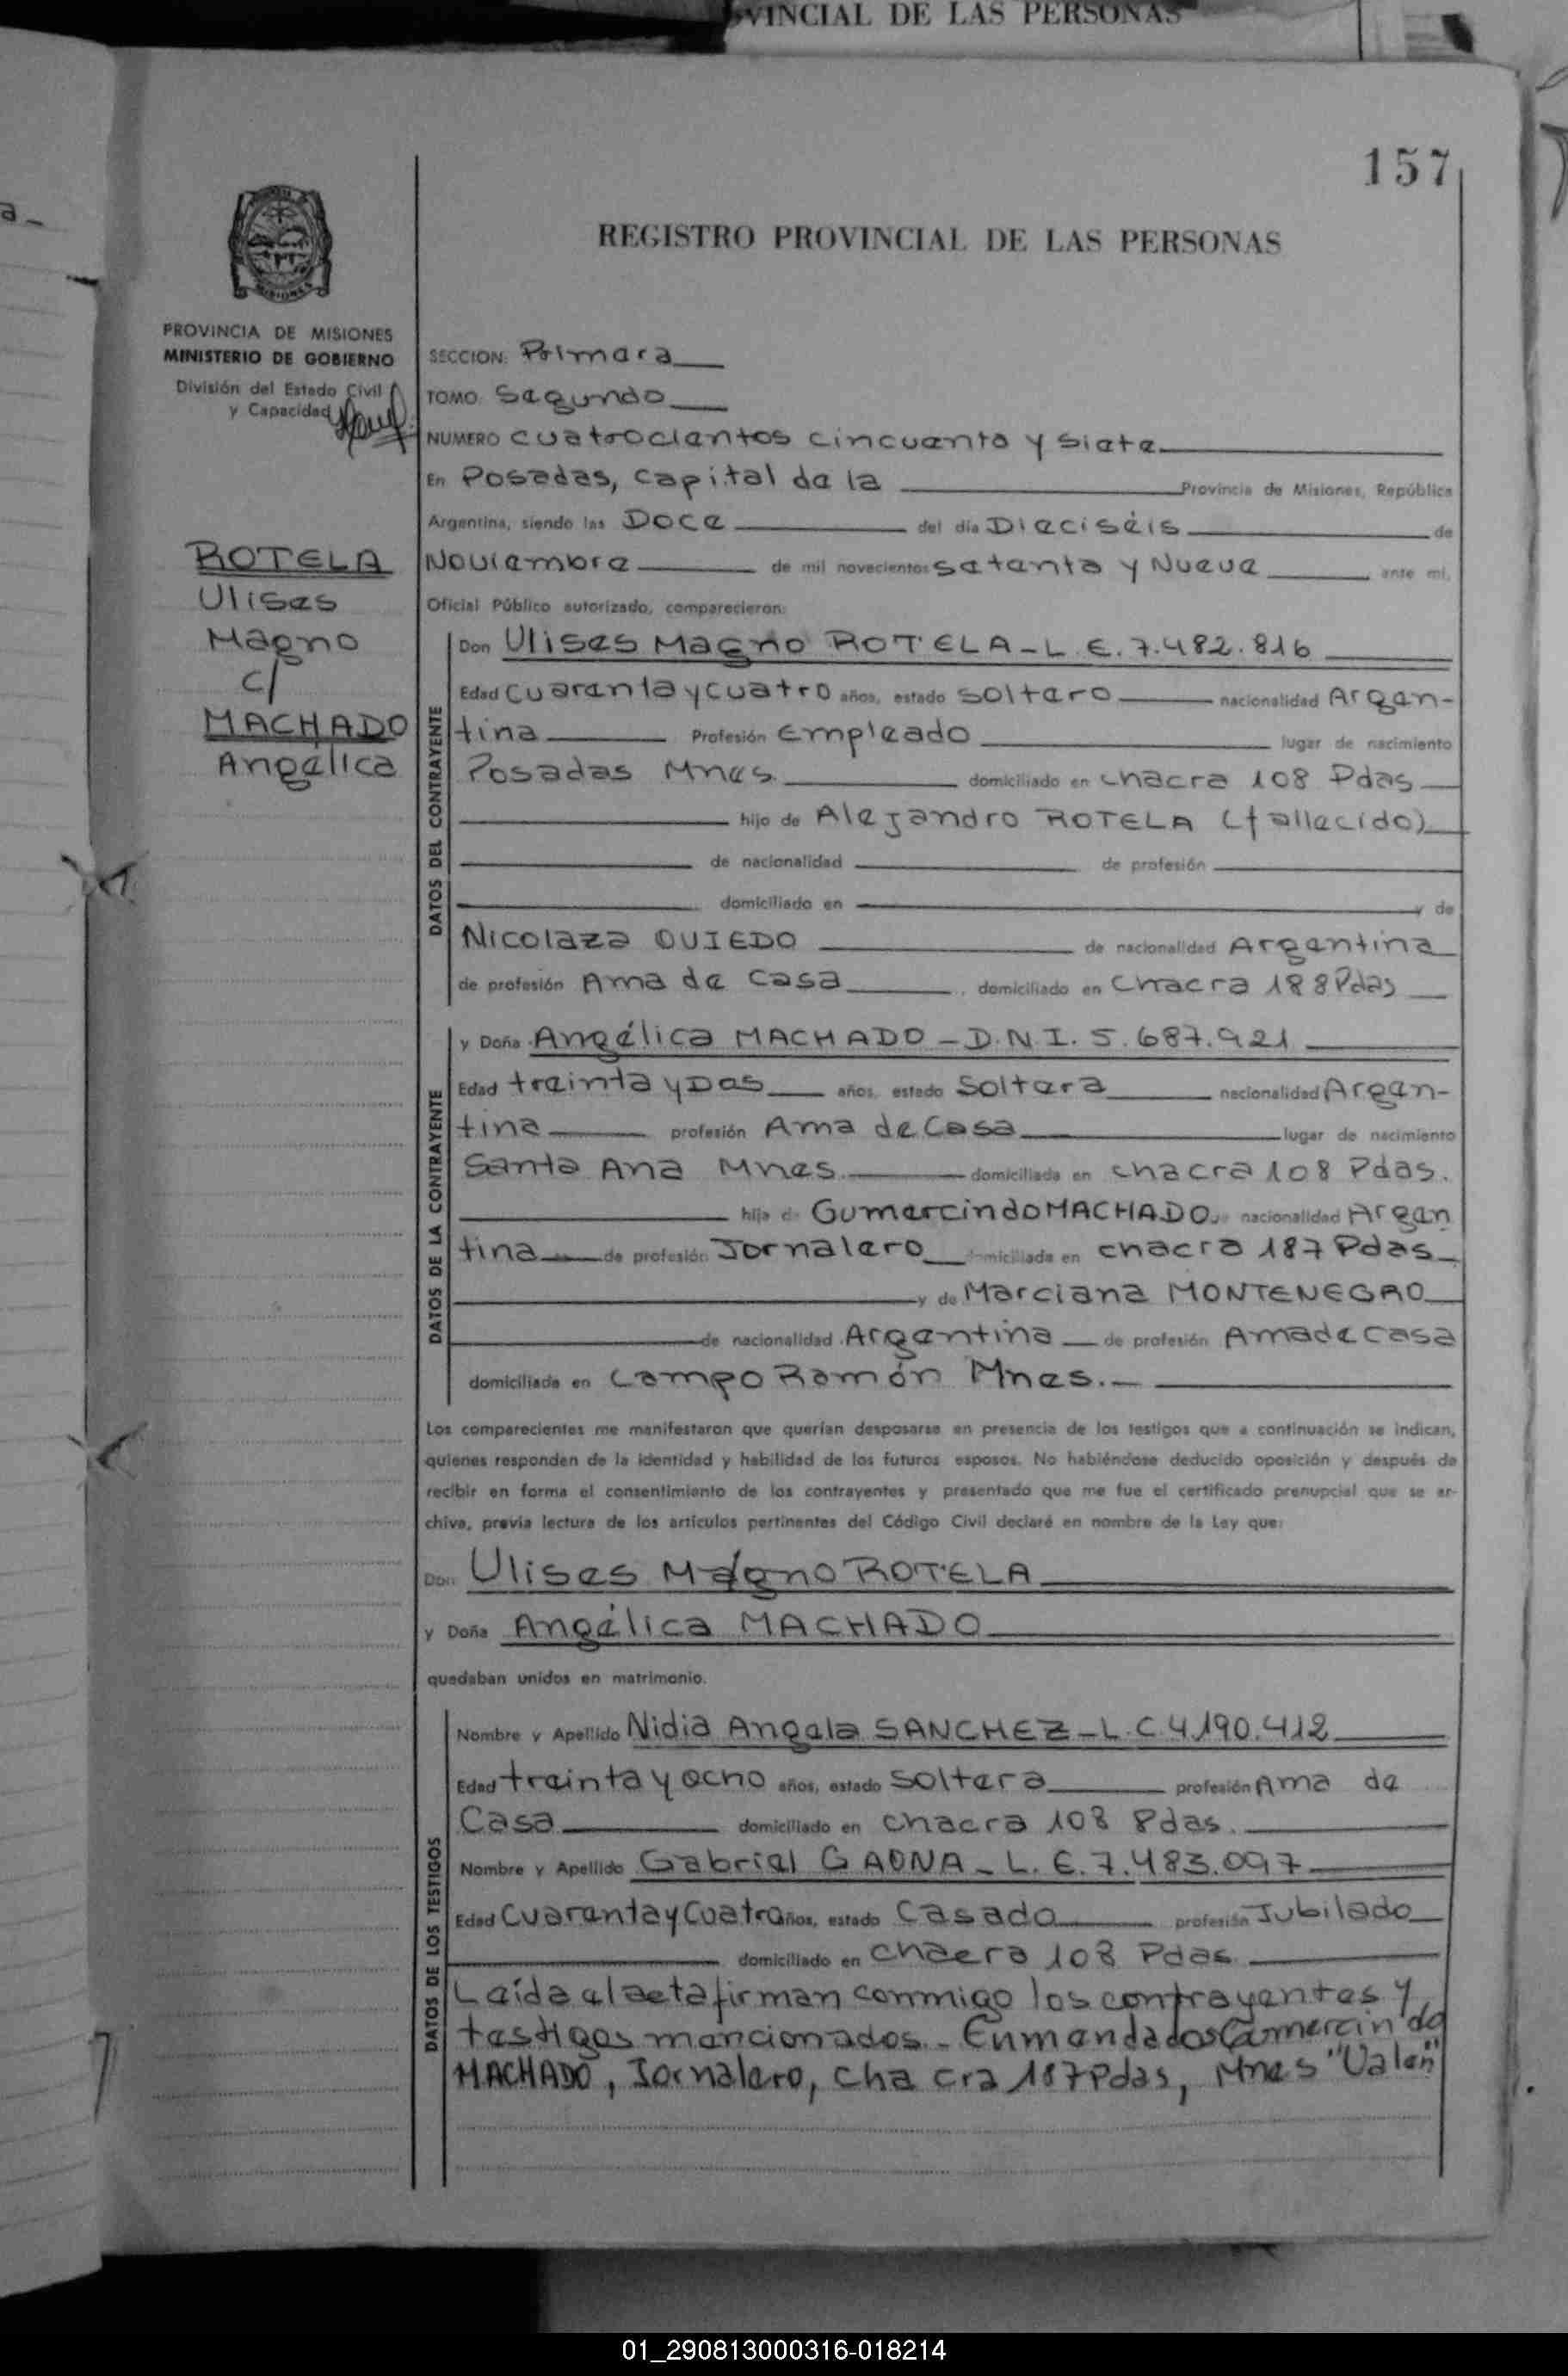 VINCIAL DE LAS PERSONAS
157
REGISTRO PROVINCIAL DE LAS PERSONAS
MISIONES
PROVINCIA DE MISIONES
MINISTERIO DE GOBIERNO
División del Estado Civil
y Capacidad
ROTELA
Ulises
Magno
c/
MACHADO
Angélica
SECCION: Primera
TOMO Segundo
NUMERO cuatrocientos cincuenta y siete
En Posadas, capital de la Provincia de Misiones, República
Argentina, siendo las Doce del día Dieciséis de
Noviembre de mil novecientos setenta y Nueve ante mi,
Oficial Público autorizado, comparecieron:
DATOS DEL CONTRAYENTE
Don Ulises Magno ROTELA - L.E. 7.482.816
Edad Cuarenta y cuatro años, estado soltero nacionalidad Argen-
tina Profesión Empleado lugar de nacimiento
Posadas Mnes. domiciliado en chacra 108 Pdas
hijo de Alejandro ROTELA (fallecido)
de nacionalidad de profesión
domiciliado en y de
Nicolaza OVIEDO de nacionalidad Argentina
de profesión Ama de casa domiciliado en Chacra 188 Pdas
DATOS DE LA CONTRAYENTE
y Doña Angélica MACHADO - D.N.I. 5.687.921
Edad treinta y Dos años, estado Soltera nacionalidad Argen-
tina profesión Ama de Casa lugar de nacimiento
Santa Ana Mnes. domiciliada en chacra 108 Pdas.
hija de Gumercindo MACHADO de nacionalidad Argen
tina de profesión Jornalero domiciliada en chacra 187 Pdas
y de Marciana MONTENEGRO
de nacionalidad Argentina de profesión Ama de casa
domiciliada en Campo Ramón Mnes.
Los comparecientes me manifestaron que querían desposarse en presencia de los testigos que a continuación se indican,
quienes responden de la identidad y habilidad de los futuros esposos. No habiéndose deducido oposición y después de
recibir en forma el consentimiento de los contrayentes y presentado que me fue el certificado prenupcial que se ar-
chiva, previa lectura de los artículos pertinentes del Código Civil declaré en nombre de la Ley que:
Don Ulises Magno ROTELA
y Doña Angélica MACHADO
quedaban unidos en matrimonio.
DATOS DE LOS TESTIGOS
Nombre y Apellido Nidia Angela SANCHEZ - L.C. 4.190.412
Edad treinta y ocho años, estado soltera profesión Ama de
Casa domiciliado en chacra 108 Pdas.
Nombre y Apellido Gabriel GAONA - L.E. 7.483.097
Edad Cuarenta y Cuatro años, estado Casado profesión Jubilado
domiciliado en chacra 108 Pdas.
Leída el acta firman conmigo los contrayentes y
testigos mencionados. - Enmendados Gumercindo
MACHADO, Jornalero, chacra 187 Pdas, Mnes "Valen"
01_290813000316-018214